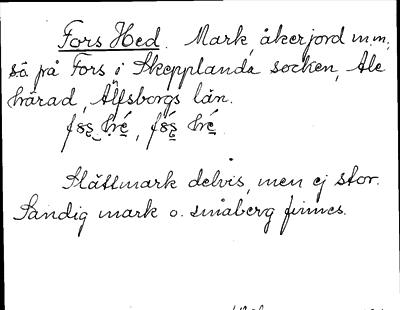 Fors Hed. Mark, åkerjord m.m.
så på Fors i Skepplanda socken, Ale
härad, Älfsborgs län.
Slättmark delvis, men ej stor.
Sandig mark o. småberg finnes.